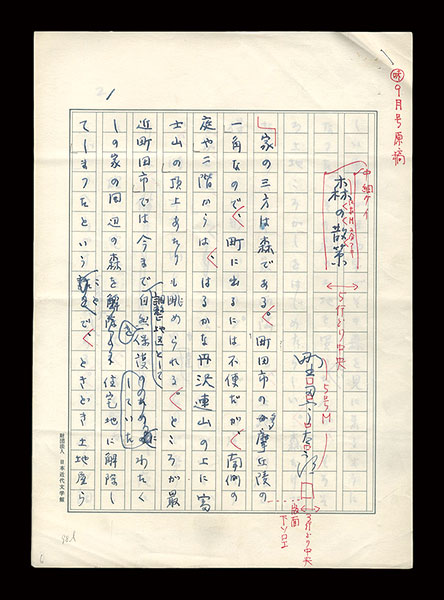 9月号原稿
中細ケイ
森の散策
5行どり中央
野田宇太郎
5号M
3行どり中央
版面
下ゾロエ
家の三方は森である。町田市の多摩丘陵の
一角なので、町に出るには不便だが、南側の
庭や二階からは、はるかな丹沢連山の上に富
士山の頂上あたりも眺められる。ところが最
近町田市では今まで調整地区として自然保護していたわたく
しの家の周辺の森を住宅地に解除し
てしまったという ことで、ときどき土地屋ら
財団法人 日本近代文学館
1